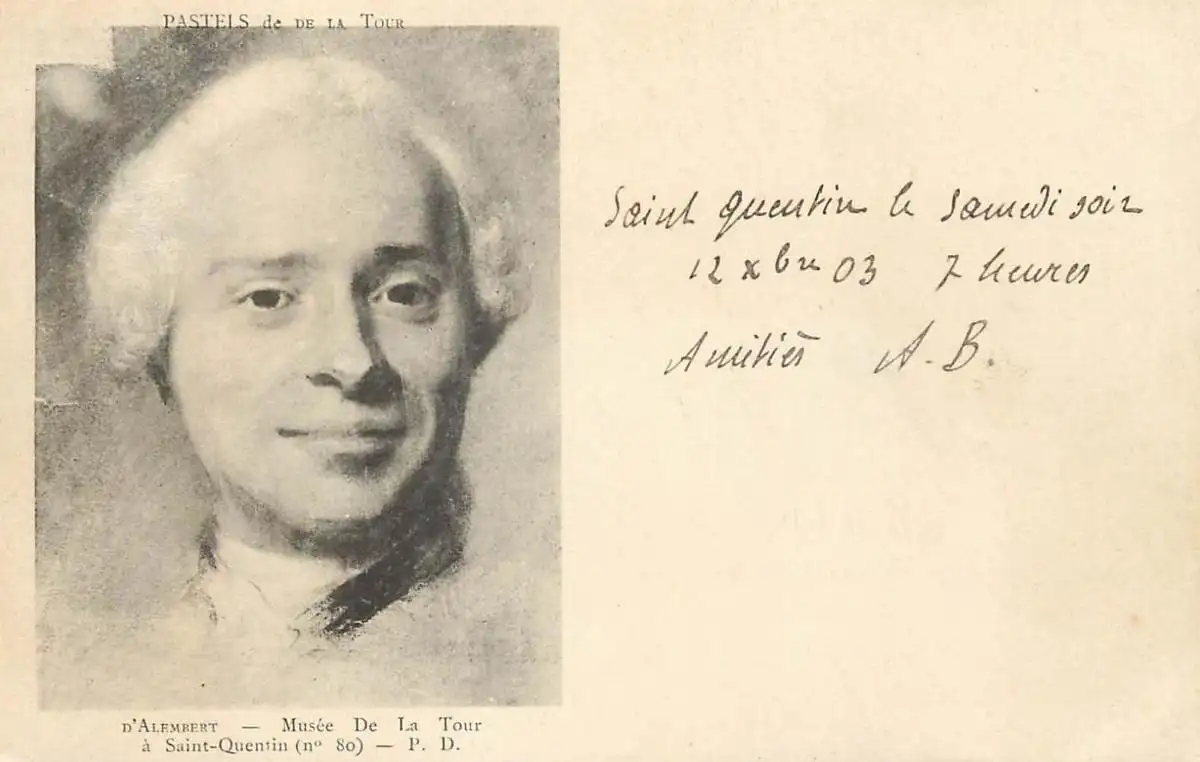 PASTELS de DE LA TOUR
Saint Quentin le Samedi soir
12 xbre 03 7 heures
Amitiés A. B.
D'ALEMBERT — Musée De La Tour
à Saint-Quentin (nº 80) — P. D.